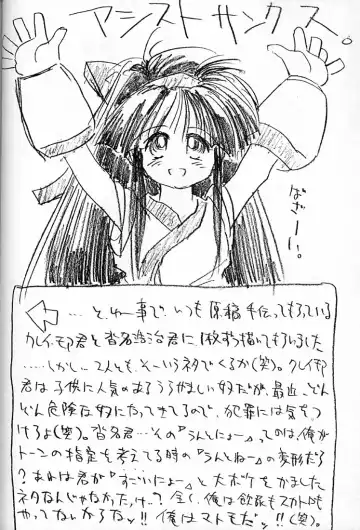 アシストサンクス。
ばざーい。
…と、ゆー事で、いつも原稿手伝ってもらっている
クレイ・邪君と沓名浩治君に、1枚ずつ描いてもらいました
……しかし…2人とも、そーいうネタでくるか(笑)。クレイ邪
君は子供に人気のあるうらやましい奴だが、最近、どん
どん危険な奴になってきてるので、犯罪には気をつ
けろよ(笑)。沓名君…その『うんとにょー』ってのは、俺が
トーンの指定を考えてる時の『うんとねー』の変形だろ
?あれは君が『すごいにょー』と大ボケをかました
ネタなんじゃなかったっけ?全く、俺は飲尿もスカトロも
やってないからなッ!!俺はマトモだ!!(笑)。